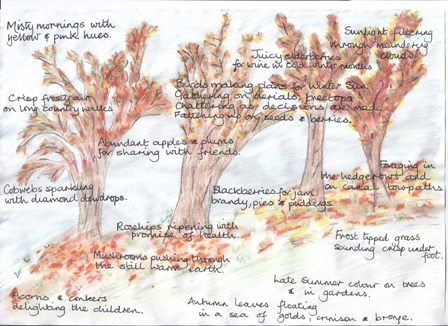 Misty mornings with
yellow & pink hues.
Sunlight filtering
through meandering
clouds.
Juicy elderberries
for wine in cold winter months
Birds making plans for Winter Sun.
Gathering on aerials, treetops
Chattering as decisions are made.
Fattening up on seeds & berries.
Crisp frosty air
on long country walks
Abundant apples & plums
for sharing with friends.
Foraging in
the hedgerows and
on canal towpaths
Cobwebs sparkling
with diamond dewdrops.
Blackberries for jam
brandy, pies & puddings.
Rosehips ripening with
promise of health.
Frost tipped grass
sounding crisp under
foot.
Mushrooms pushing through
the still warm earth.
Late Summer colour on trees
& in gardens.
Acorns & conkers
delighting the children.
Autumn leaves floating
in a sea of golds, crimson & bronze.